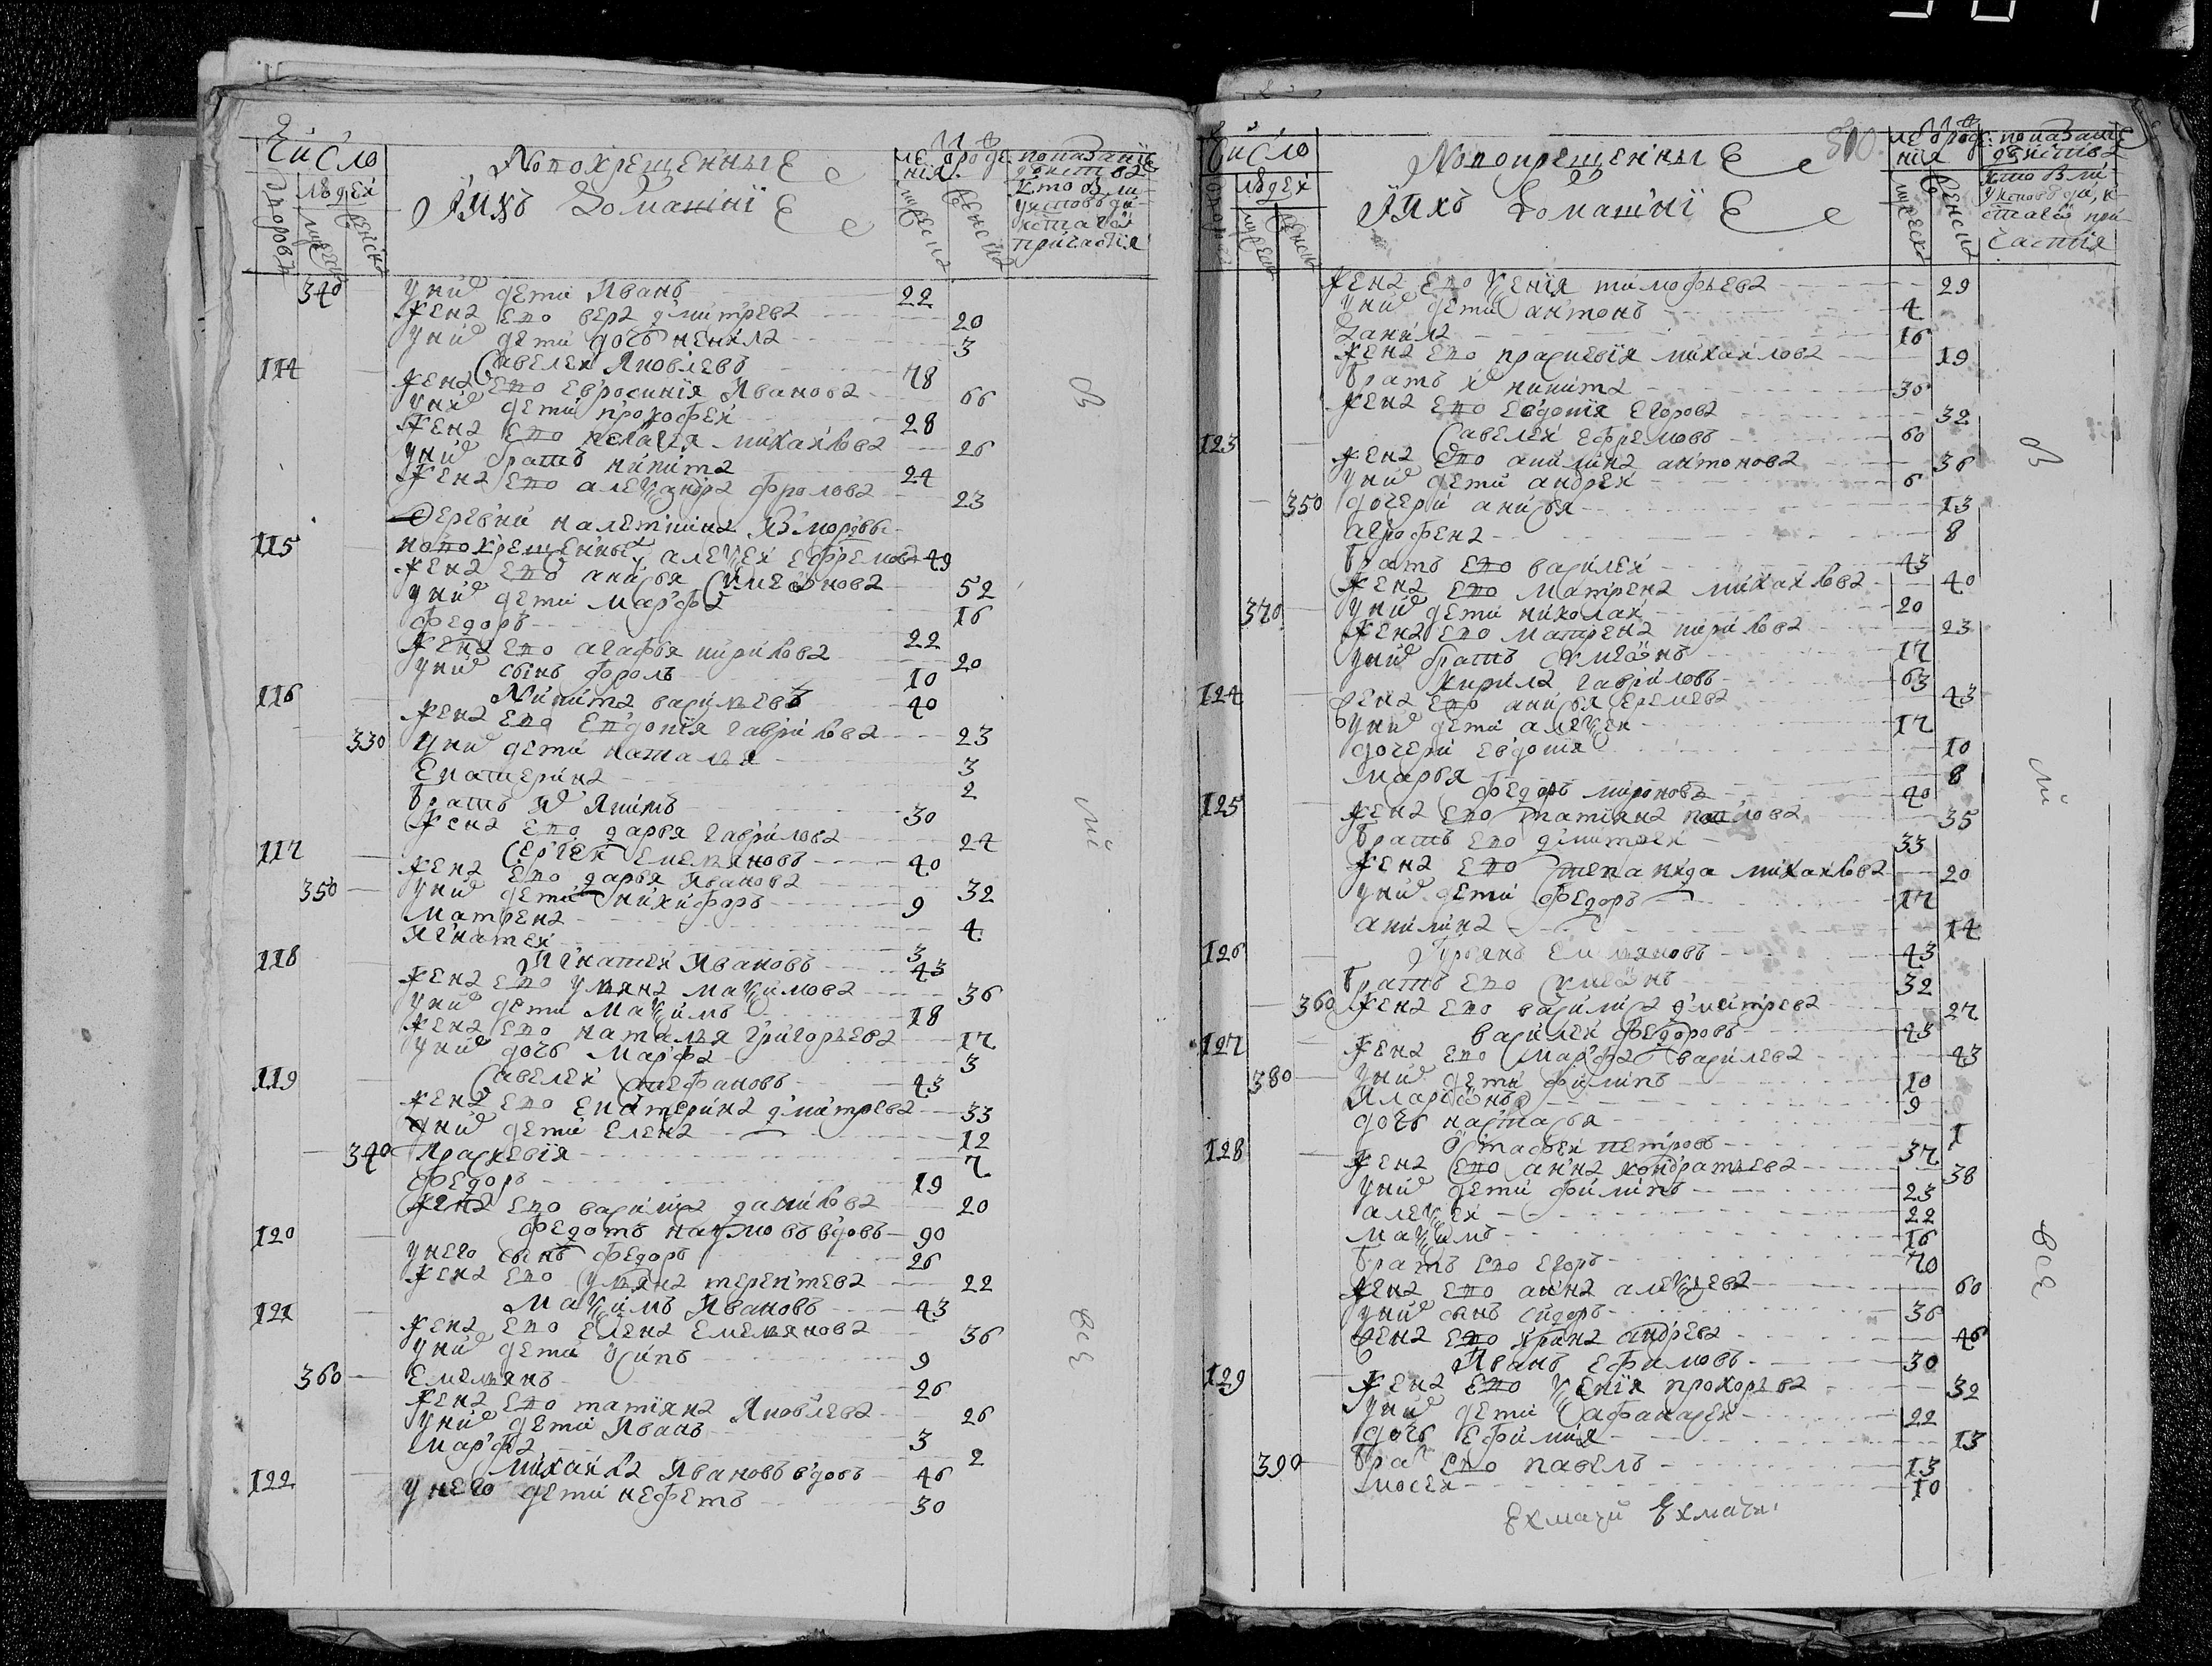 Число
дворовъ
людей
мужеска
женска
Новокрещенные
и ихъ домашние
лета рожде
ния
мужеска
женска
показание
действа
кто был
у исповеди
и святаго
причастия
340 у них дети Иванъ 22
жена ево вера дмитрева 20
у них дети дочь ненила 3
114 Савелей Яковлевъ 78
жена ево евросиния Иванова 66
у них дети прокофей 28
жена ево пелагея михайлова 26
у них братъ никита 24
жена ево александра фролова 23
Деревни налеткина из мордвы
115 новокрещенныхъ алексей ефремовъ 49
жена ево анисья Симеонова 52
у них дети марфа 16
федоръ 22
жена ево агафья кирилова 20
у них сынъ фролъ 10
116 Никита василевъ 40
жена ево евдокия гаврилова 23
330 у них дети наталья 3
Екатерина 2
братъ их Никитъ 30
жена ево дарья гаврилова 24
117 Сергей Емельяновъ 40
жена ево дарья Иванова 32
350 у них дети никифоръ 9
матрена 4
Игнатей 3
118 Игнатей Ивановъ 43
жена ево ульяна максимова 36
у них дети максимъ 18
жена ево наталья григорьева 17
у них дочь марфа 3
119 Савелей Стефановъ 43
жена ево екатерина дмитрева 33
у них дети Елена 12
340 Праскевия 7
федоръ 19
жена ево василиса данилова 20
120 Федотъ наумовъ вдовъ 90
у него сынъ федоръ 26
жена ево ульяна терентева 22
121 Максимъ Ивановъ 43
жена ево елена емельянова 36
у них дети осипъ 9
360 Емельянъ 26
жена ево татияна Яковлева 26
у них дети Иванъ 3
марфа 2
122 михайла Ивановъ вдовъ 46
у него дети нефетъ 30
В
сй
все
Число
людей
мужеска
женска
Новокрещенные 310
и ихъ домашние
лета рожде
ния
мужеска
женска
показание
действа
кто был
у исповеди, и
святаго при
частия
жена ево ксения тимофеева 29
у них дети антонъ 4
данила 16
жена ево праскевия михайлова 19
братъ их никита 30
жена ево евдокия егорова 32
123 Савелей ефремовъ 60
жена ево акилина антонова 36
у них дети андрей 6
350 дочери анисья 13
аграфена 8
братъ ево василей 43
жена ево матрена михайлова 40
370 у них дети николай 20
жена ево матрена кирилова 23
у них братъ симеонъ 17
124 Кирила гавриловъ 63
жена ево анисья еремева 43
у них дети алексей 17
дочери евдокия 10
марья 8
125 Федоръ мироновъ 40
жена ево татияна павлова 35
братъ ево дмитрей 33
жена ево степанида михайлова 20
у них дети федоръ 17
акилина 14
126 Емельяновъ 43
братъ ево симеонъ 32
360 жена ево василиса дмитрева 27
127 василей федоровъ 43
жена ево марфа василева 43
380 у них дети филипъ 10
Иларионъ 9
дочь настасья 1
128 Остафей петровъ 37
жена ево анна кондратьева 38
у них дети филипъ 23
алексей 22
максимъ 16
братъ ево егоръ 70
жена ево анна алексева 60
у них сынъ сидоръ 36
жена ево ирина андрева 46
129 Иванъ ефимовъ 30
жена ево ксения прохорова 32
у них дети афанасей 22
дочь ефимия 13
390 братъ ево павелъ 13
мосей 10
В
сй
все